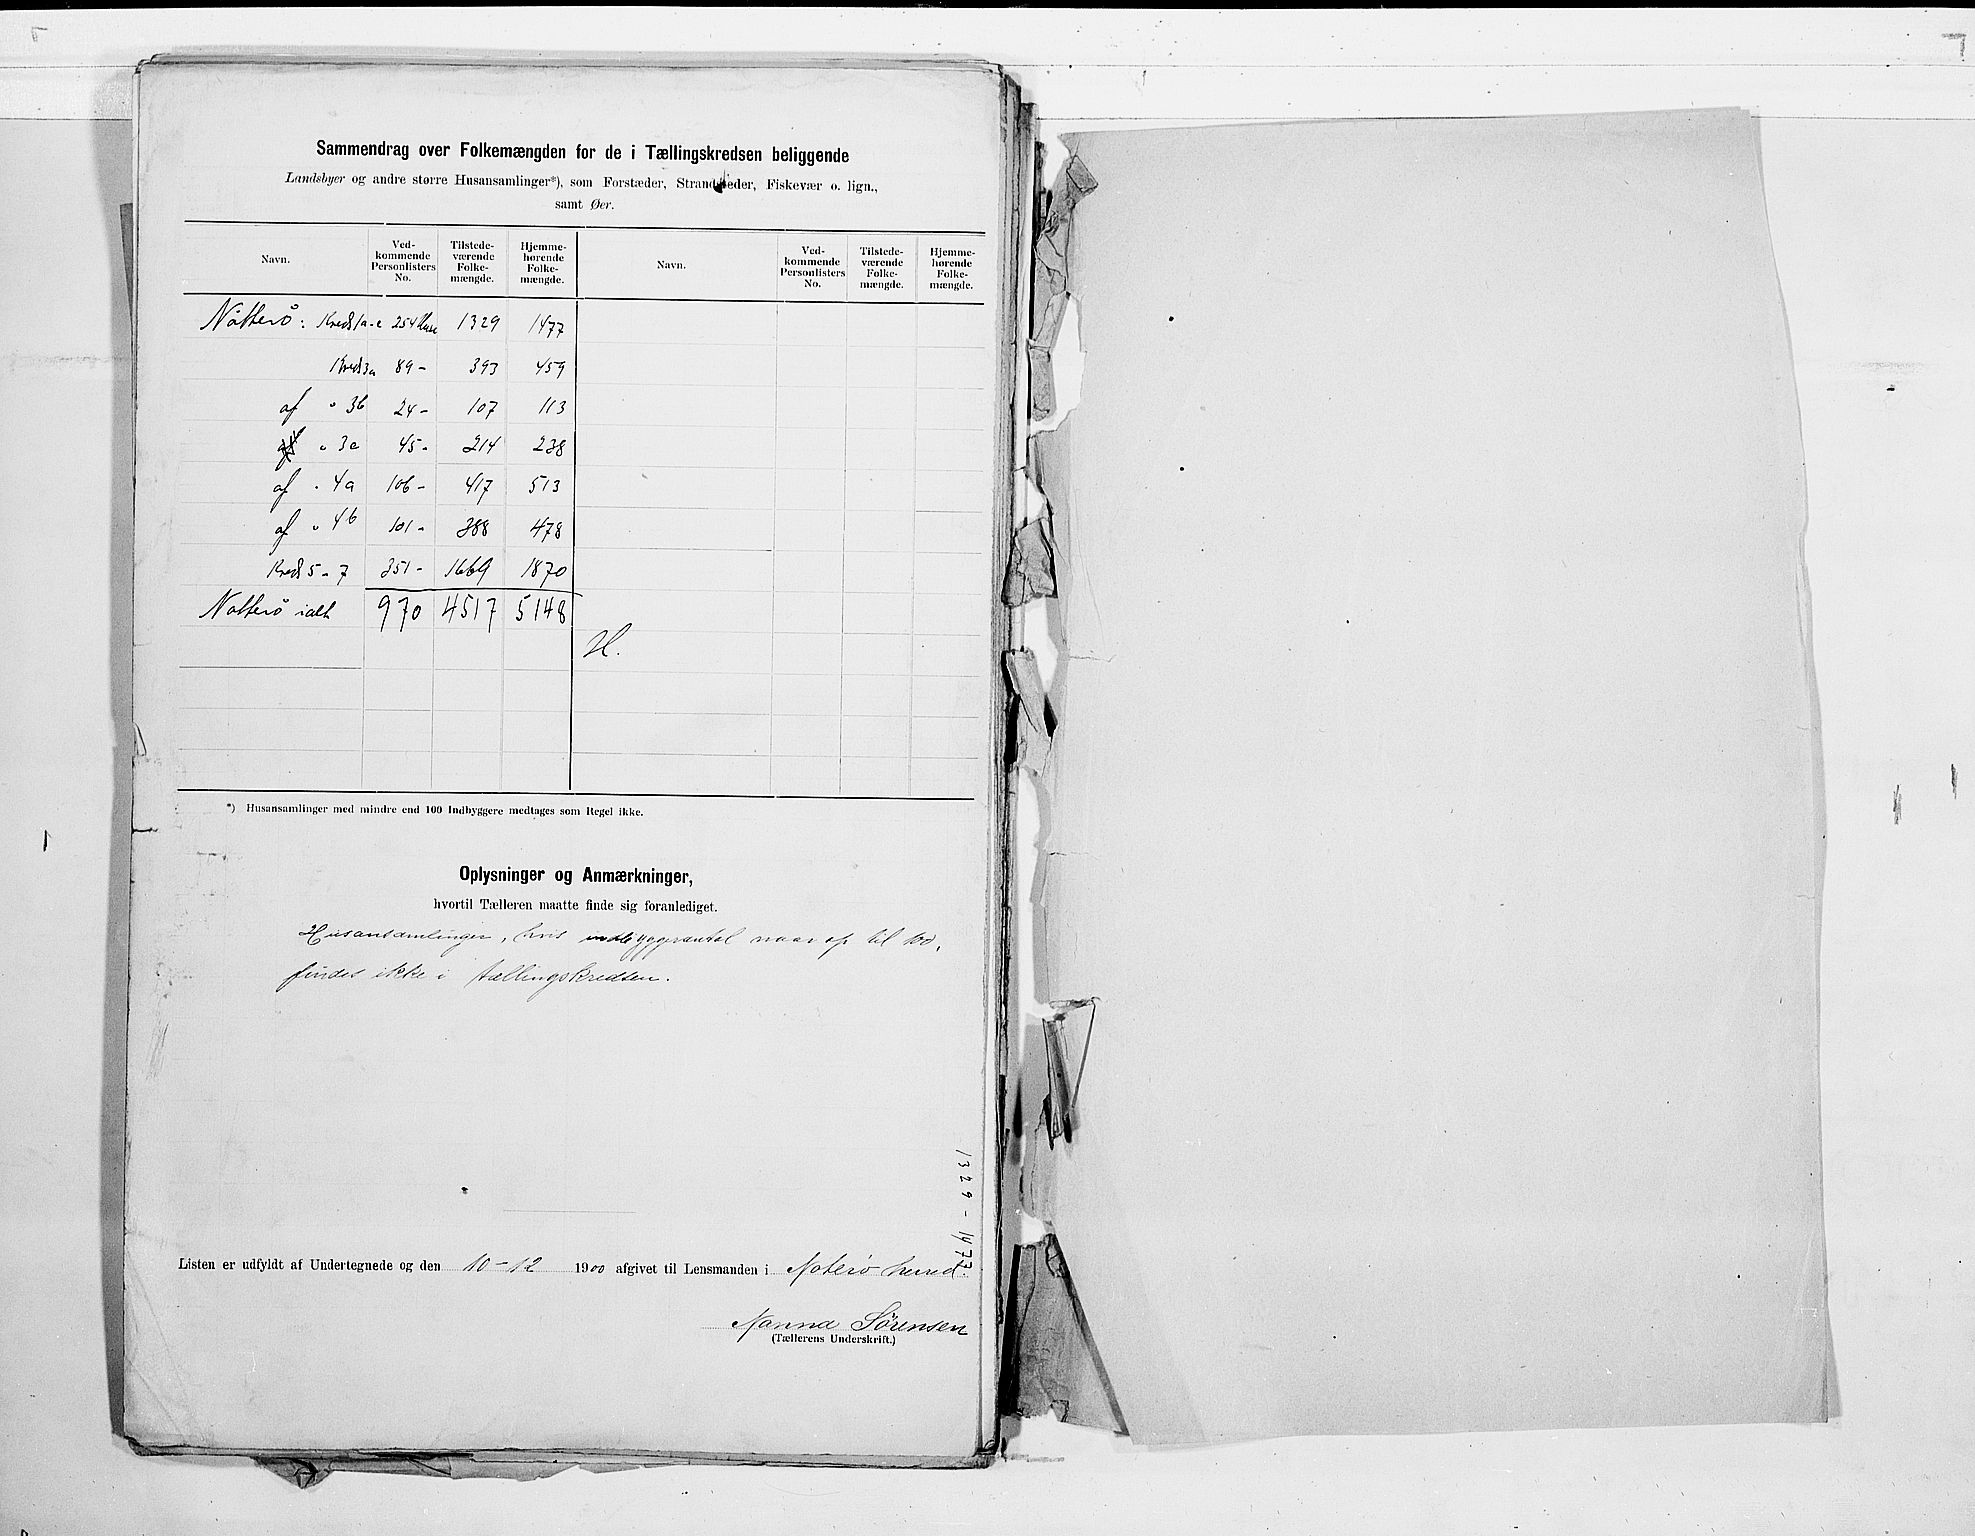 Sammendrag over Folkemængden for de i Tællingskredsen beliggende
Landsbyer og andre større Husansamlinger*), som Forstæder, Strandsteder, Fiskevær o. lign.,
samt Øer.
Navn. Ved-kommende Personlisters No. Tilstede-værende Folke-mængde. Hjemme-hørende Folke-mængde. Navn. Ved-kommende Personlisters No. Tilstede-værende Folke-mængde. Hjemme-hørende Folke-mængde.
Nötterö: Kreds 1a-e 254 Huse 1329 1477
Kreds 3a 89 - 393 459
af " 3b 24 - 107 113
" 3c 45 - 214 238
af " 4a 106 - 417 513
af " 4b 101 - 388 478
Kreds 5-7 351 - 1669 1870
Nötterö ialt 970 4517 5148
H.
*) Husansamlinger med mindre end 100 Indbyggere medtages som Regel ikke.
Oplysninger og Anmærkninger,
hvortil Tælleren maatte finde sig foranlediget.
Husansamlinger, hvis indbyggerantal naar op til 100,
findes ikke i tællingskredsen.
1329 - 1477
Listen er udfyldt af Undertegnede og den 10-12 1900 afgivet til Lensmanden i Nøterø herred.
Nanna Sørensen
(Tællerens Underskrift.)